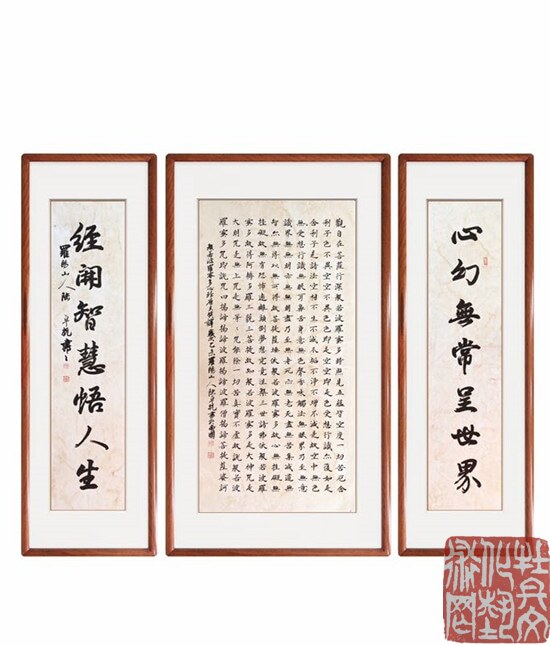 心幻無常呈世界
觀自在菩薩行深般若波羅蜜多時照見五蘊皆空度一切苦厄舍
利子色不異空空不異色色即是空空即是色受想行識亦復如是
舍利子是諸法空相不生不滅不垢不淨不增不減是故空中無色
無受想行識無眼耳鼻舌身意無色聲香味觸法無眼界乃至無意
識界無無明亦無無明盡乃至無老死亦無老死盡無苦集滅道無
智亦無得以無所得故菩提薩埵依般若波羅蜜多故心無罣礙無
罣礙故無有恐怖遠離顛倒夢想究竟涅槃三世諸佛依般若波羅
蜜多故得阿耨多羅三藐三菩提故知般若波羅蜜多是大神咒是
大明咒是無上咒是無等等咒能除一切苦真實不虛故說般若波
羅蜜多咒即說咒曰揭諦揭諦波羅揭諦波羅僧揭諦菩提薩婆訶
般若波羅蜜多心經唐玄奘譯
經開智慧悟人生
山人